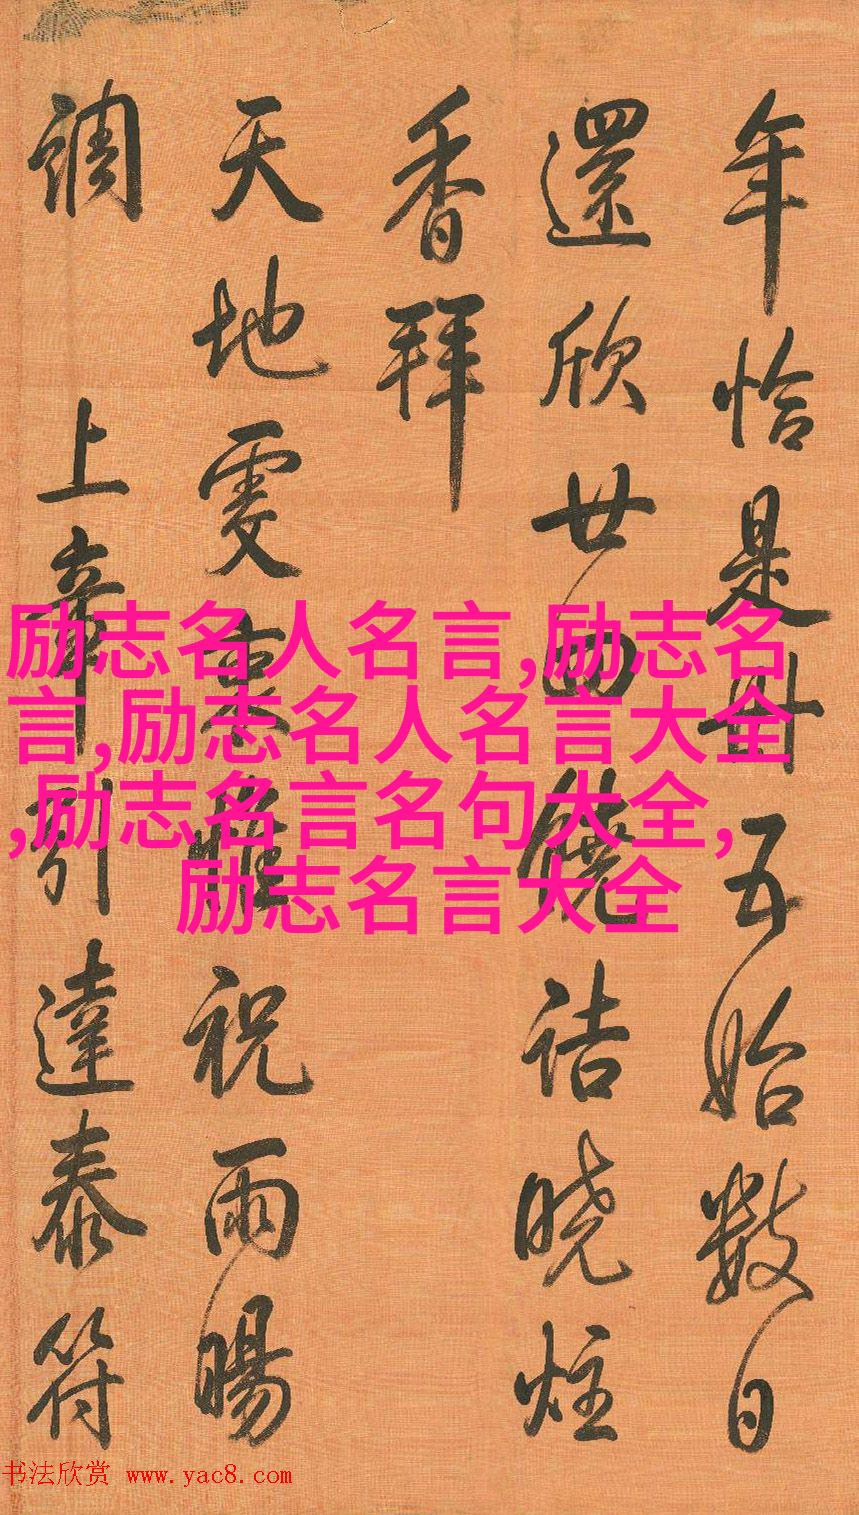 年恰是卅五始數日
還欣廿四饒詰曉炷
香拜
天地虔衷惟祝雨暘
調 上章引達泰符
励志名人名言,励志名
言,励志名人名言大全
,励志名言名句大全,
励志名言大全
书法欣赏 www.yac8.com